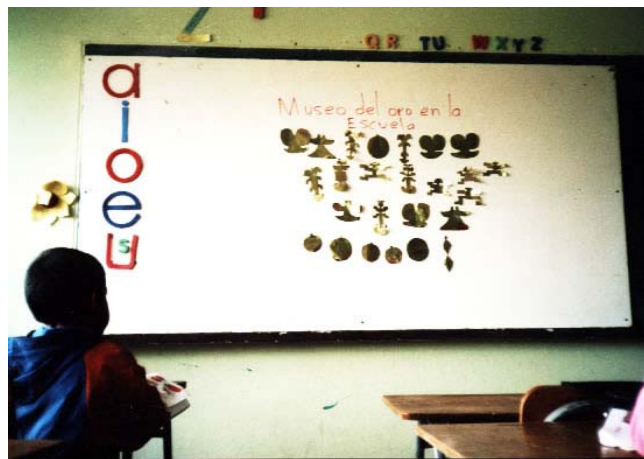 Q R T U W X Y Z
a
i
o
e
u
s
Museo del oro en la
Escuela